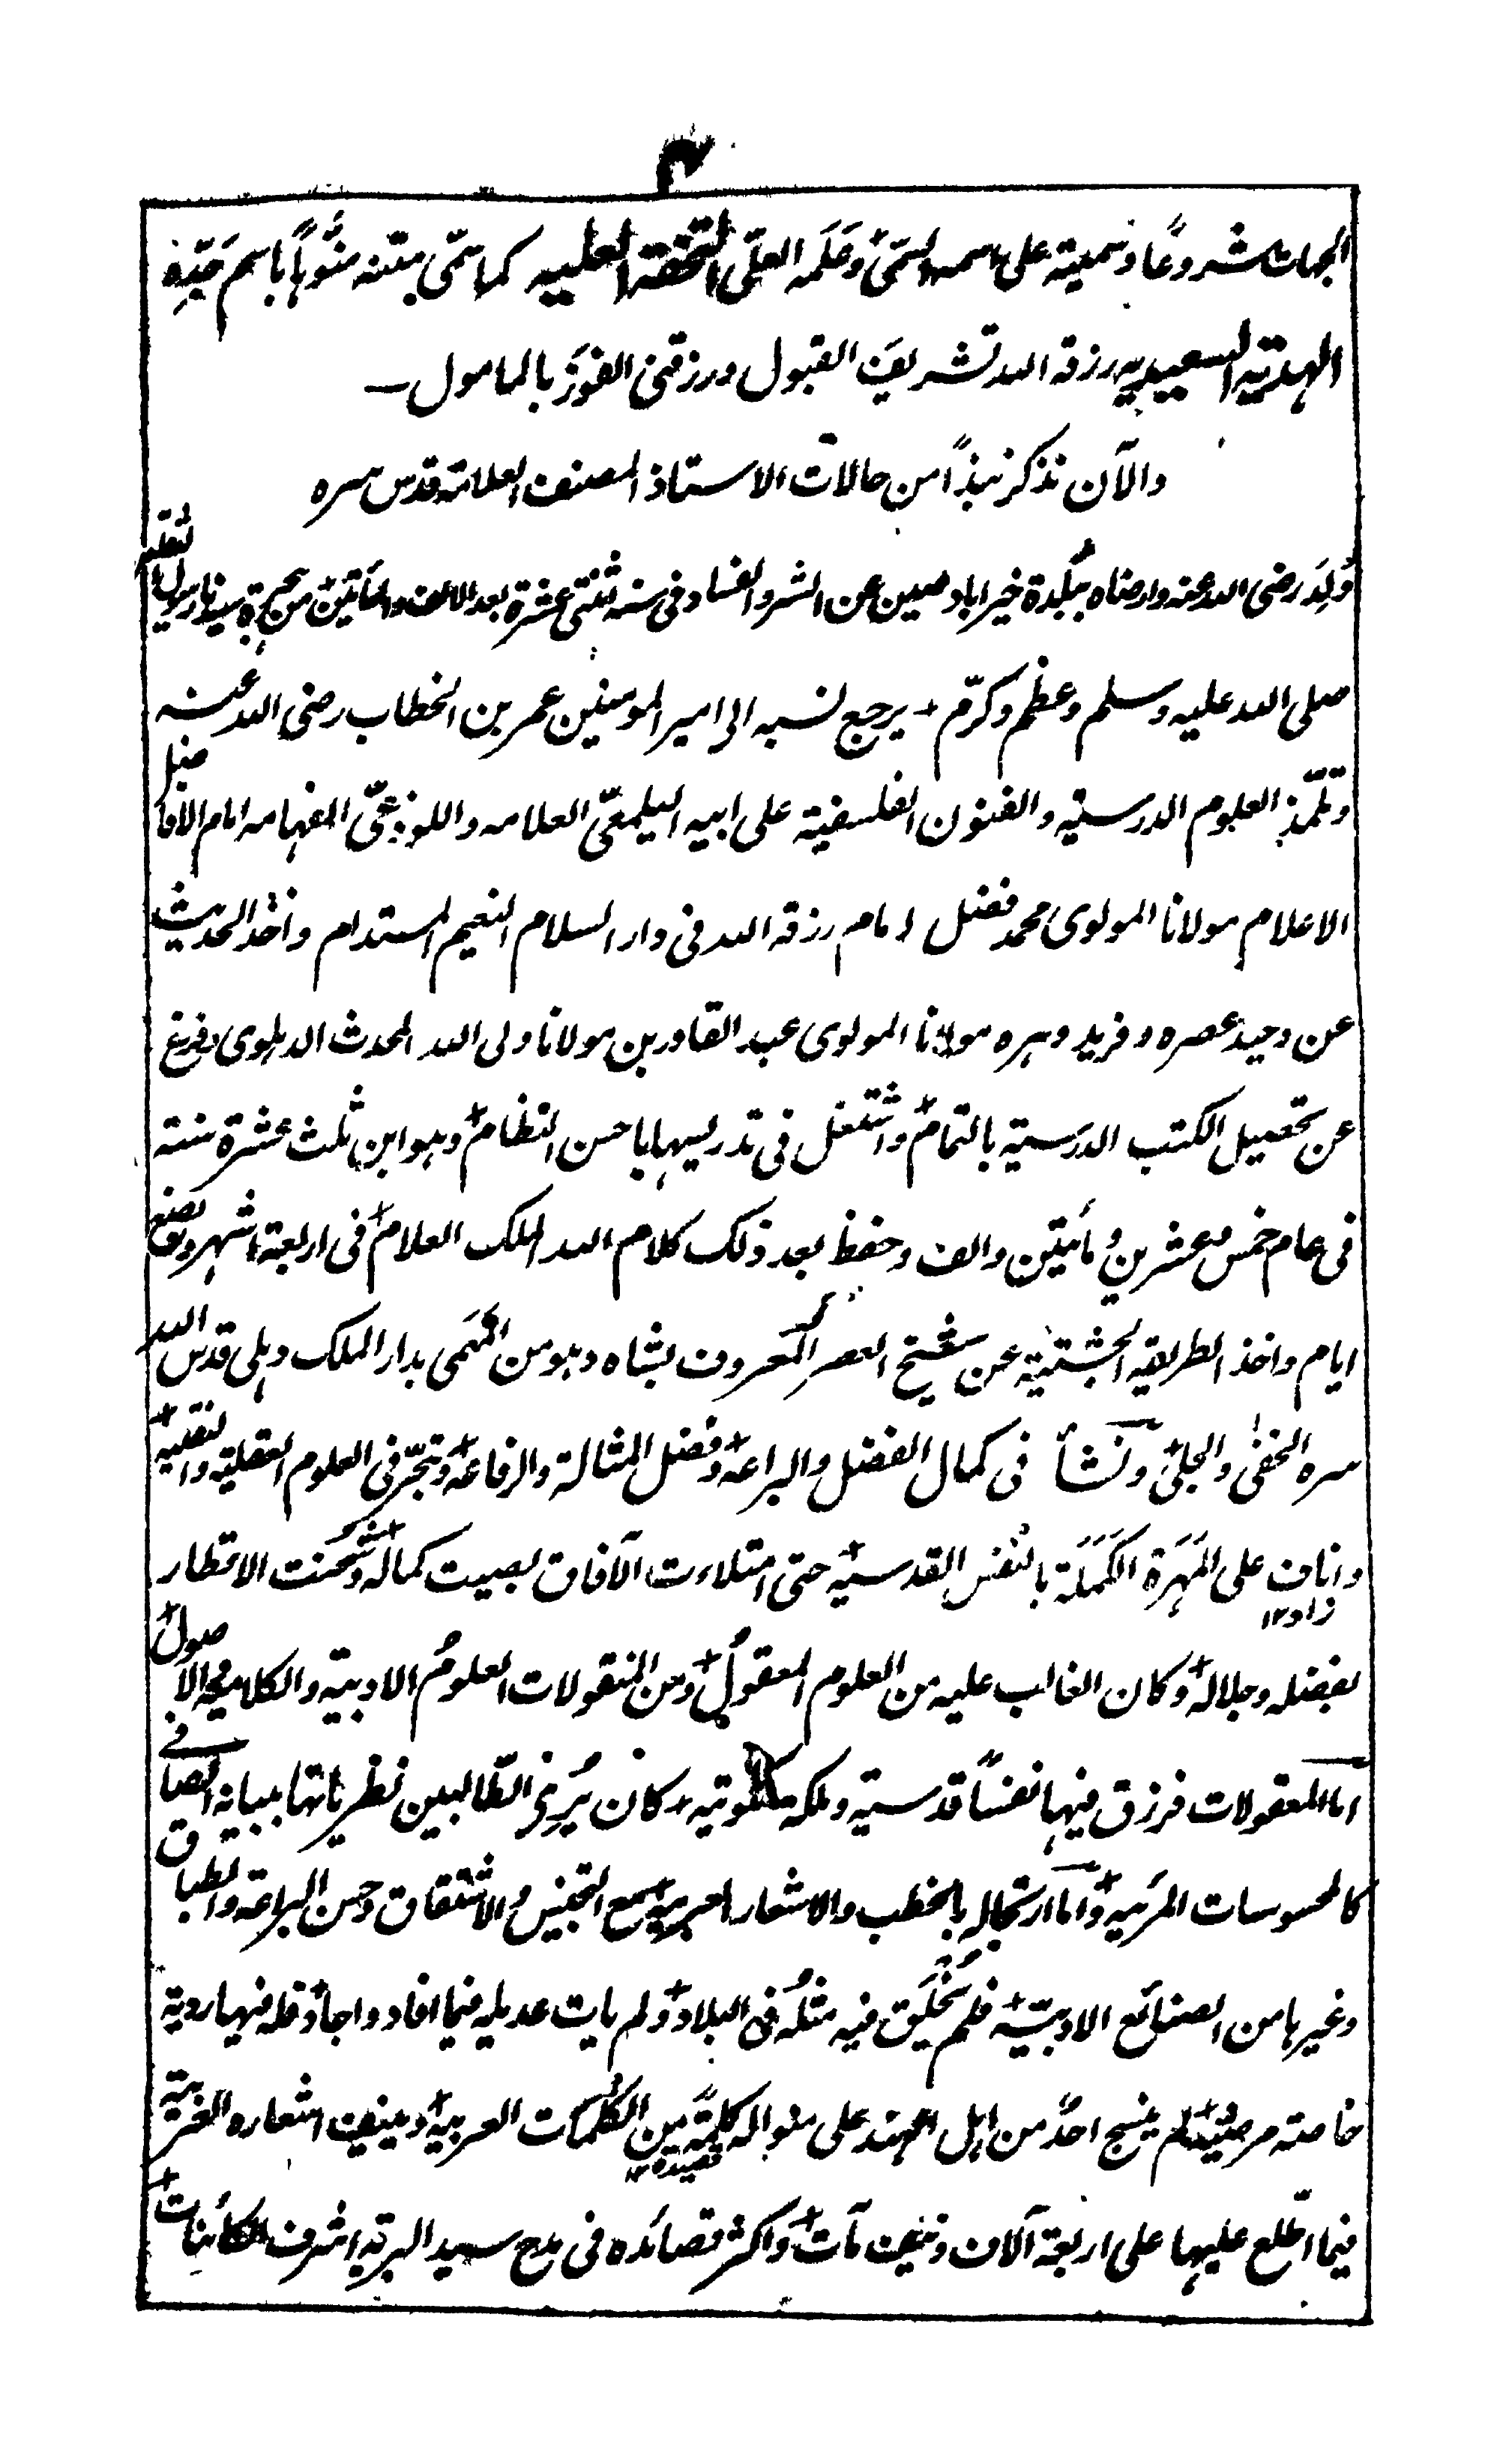 ۳
الجهات شروعًا وسميته على اسمه السمىّ وعَلَمه العلىّ التحفة العليه كما سمّى متنه منوّهاً باسم جَدِّه
الهدية السعيديه رزقه الله تشريف القبول ورزقنى الفوزَ بالمامول ـ
والآن نذكر نبذاً من حالات الاستاذ المصنف العلامة قدس سره
وُلِدَ رضى الله عنه وارضاه ببلدة خيراباد صين عن الشر والفساد فى سنه ثنتى عشرة بعد الالف والمأتين من هجرة سيدنا رسول الثقلين
صلى الله عليه وسلم وعظم وكرّم + يرجع نسبه الى امير المومنين عمر بن الخطاب رضى الله عنه
وتلمّذ العلوم الدرسيّة والفنون الفلسفية على ابيه اليلمعىّ العلامه واللوذعىّ الفهامه امام الافاضل
الاعلام مولانا المولوى محمد فضل امام رزقه الله فى دار السلام النعيم المستدام واخذ الحديث
عن وحيد عصره وفريد دهره مولانا المولوى عبد القادر بن مولانا ولى الله المحدث الدهلوى وفرغ
عن تحصيل الكتب الدرسية بالتمام+ واشتغل فى تدريسها باحسن النظام+ وهو ابن ثلث عشرة سنة
فى عام خمس وعشرين ومأتين والف وحفظ بعد ذلك كلام الله الملك العلام+ فى اربعة اشهر وبضع
ايام واخذ الطريقه الجشتية عن شيخ العصر المعروف بشاه دهومن المحمى بدار الملك دهلى قدس الله
سره الخفى والجلى+ ونشأ فى كمال الفضل والبراعه+ وفضل المثالة والرفاعه+ وتبحّر فى العلوم العقلية والنقليه+
واناف على المَهَرَة الكَمَلَة بالنفس القدسيه+ حتى امتلاءت الآفاق بصيت كماله+ وشُحنت الاقطار
زاد ١٢
بفضله وجلاله+ وكان الغالب عليه من العلوم المعقولُ+ ومن المنقولات العلومُ الادبية والكلامية والاصول+
اما المعقولات فرزق فيها نفساً قدسية وملكة ملكوتيه+ كان يُرِىَ الطّالبين نظرياتها ببيانه الصافى
كالمحسوسات المرئيه+ واما ارتجاله بالخطب والاشعار العربيه+ مع التجنيس والاشتقاق وحسن البراعة والطباق
وغيرها من الصنائع الادبيّه+ فلم يُخلَق فيه مثلُه فى البلاد+ ولم يات عديله فيما افاد واجاد+ وله فيها روية
خاصة مرضية+ لم ينسج احدٌ من اهل الهند على منواله كلمةً من الكلمات العربيه+ وينيف اشعاره الغريبة
قصيدة ١٢
فيما اطّلع عليها على اربعة آلاف ونيف مآت+ واكثر قصائده فى مدح سيد البرية اشرف الكائنات+